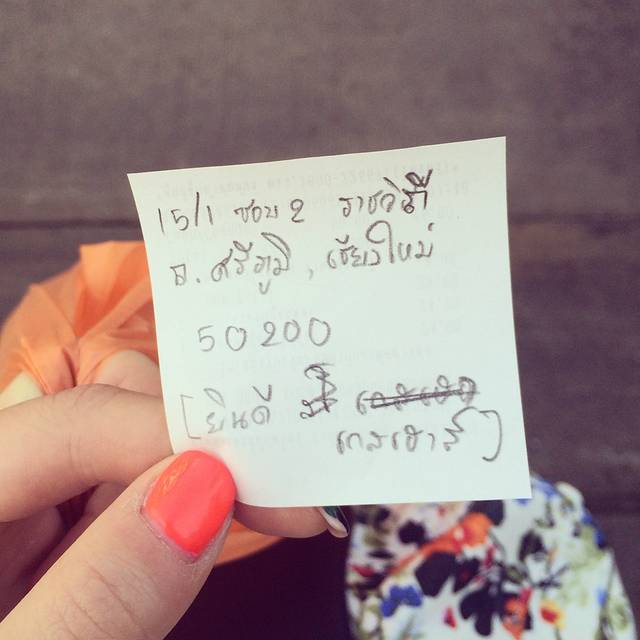 15/1 ซอย 2 ราชวิถี
ต.ศรีภูมิ, เชียงใหม่
50200
[ยินดี
เกสเฮาส์]